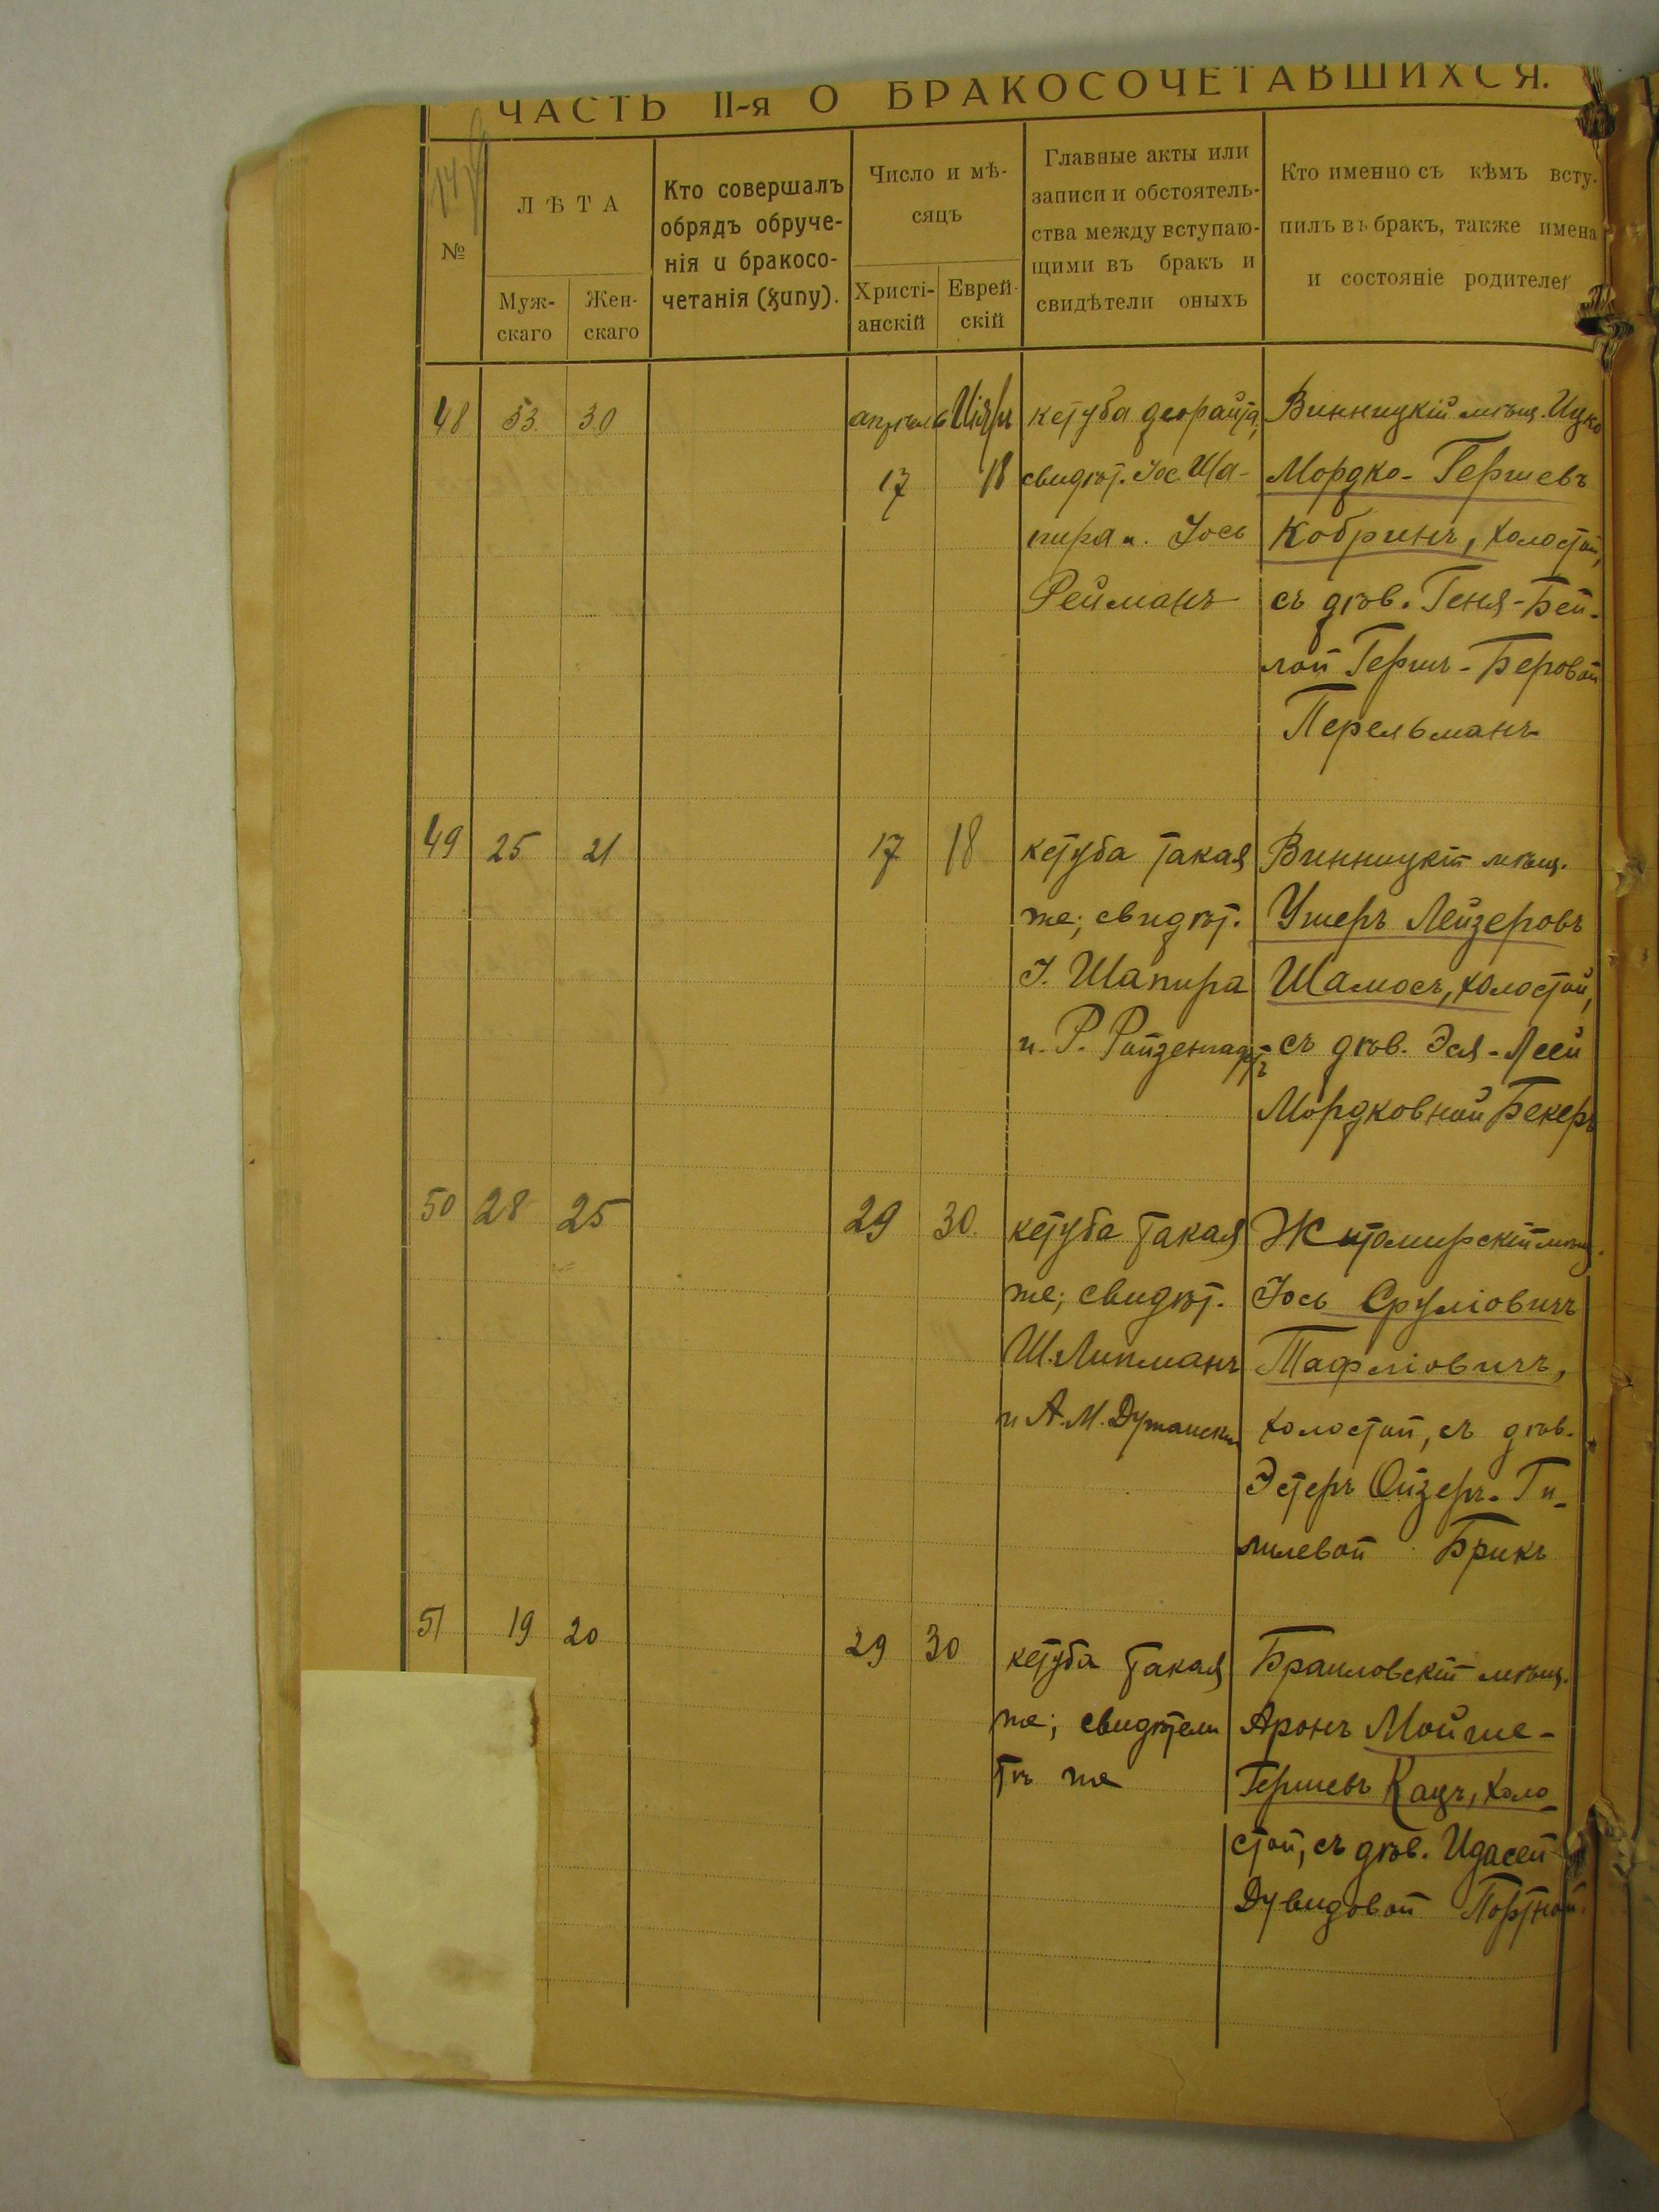 ЧАСТЬ II-я О БРАКОСОЧЕТАВШИХСЯ.
№
ЛѢТА
Муж-
скаго
Жен-
скаго
Кто совершалъ
обрядъ обруче-
нія и бракосо-
четанія (хупу).
Число и мѣ-
сяцъ
Христі-
анскій
Еврей-
скій
Главные акты или
записи и обстоятель-
ства между вступаю-
щими въ бракъ и
свидѣтели оныхъ
Кто именно съ кѣмъ всту-
пилъ въ бракъ, также имена
и состояніе родителей
48 33 30
апрѣль Ияръ
17 18
кетуба деорайта,
свидѣт. Іос Ша-
пира и Іось
Рейманъ
Винницкій мѣщ. Ицко
Мордко-Гершевъ
Кобринъ, холостой,
съ дѣв. Геня-Бей-
лой Гершъ-Беровой
Перельманъ
49 25 21 17 18
кетуба такая
же; свидѣт.
І. Шапира
и Р.
Винницкій мѣщ.
Ушеръ Лейзеровъ
Шамосъ, холостой,
съ дѣв. Эся-Леей
Мордковной Бекеръ
50 28 25 29 30
кетуба такая
же; свидѣт.
Ш. Липманъ
и А. М.
Житомирскій мѣщ.
Іось Сруліовичъ
Тафліовичъ,
холостой, съ дѣв.
Эстеръ Ойзеръ-Ги-
милевой Брикъ
51 19 20 29 30
кетуба такая
же; свидѣтели
тѣ же
Браиловскій мѣщ.
Аронъ Мойше-
Гершевъ Кацъ, холо-
стой, съ дѣв. Идасей
Дувидовой Портной.